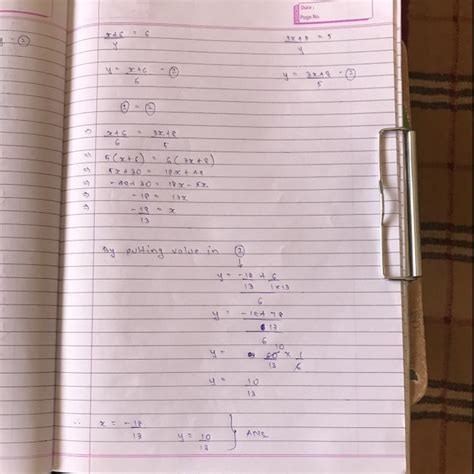 Date :
Page No.
y - ②
x+6 = 6
y
3x+8 = 5
y
y = x+6 - ②
6
y = 3x+8 - ②
5
① = ②
⇒ x+6 = 3x+8
6 5
⇒ 5(x+6) = 6(3x+8)
⇒ 5x+30 = 18x+48
⇒ -48+30 = 18x-5x
⇒ -18 = 13x
⇒ -18 = x
13
By putting value in ②
y = -18 + 6
13 1×13
6
y = -18+78
13
6
y = 10
60 × 1
13 6
y = 10
13
∴ x = -18
13
y = 10
13
Ans